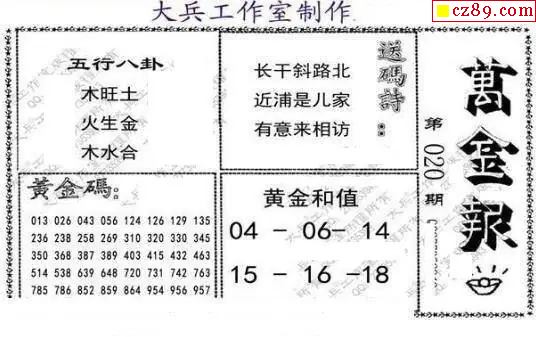 大兵工作室制作
cz89.com
五行八卦
木旺土
火生金
木水合
送碼詩：
长干斜路北
近浦是儿家
有意来相访
萬金報
第020期
黃金碼：
013 026 043 056 124 126 129 135
236 238 258 269 310 320 330 345
350 368 387 389 403 415 432 463
514 538 639 648 720 731 742 763
785 786 852 859 864 954 956 957
黄金和值
04 - 06- 14
15 - 16 -18